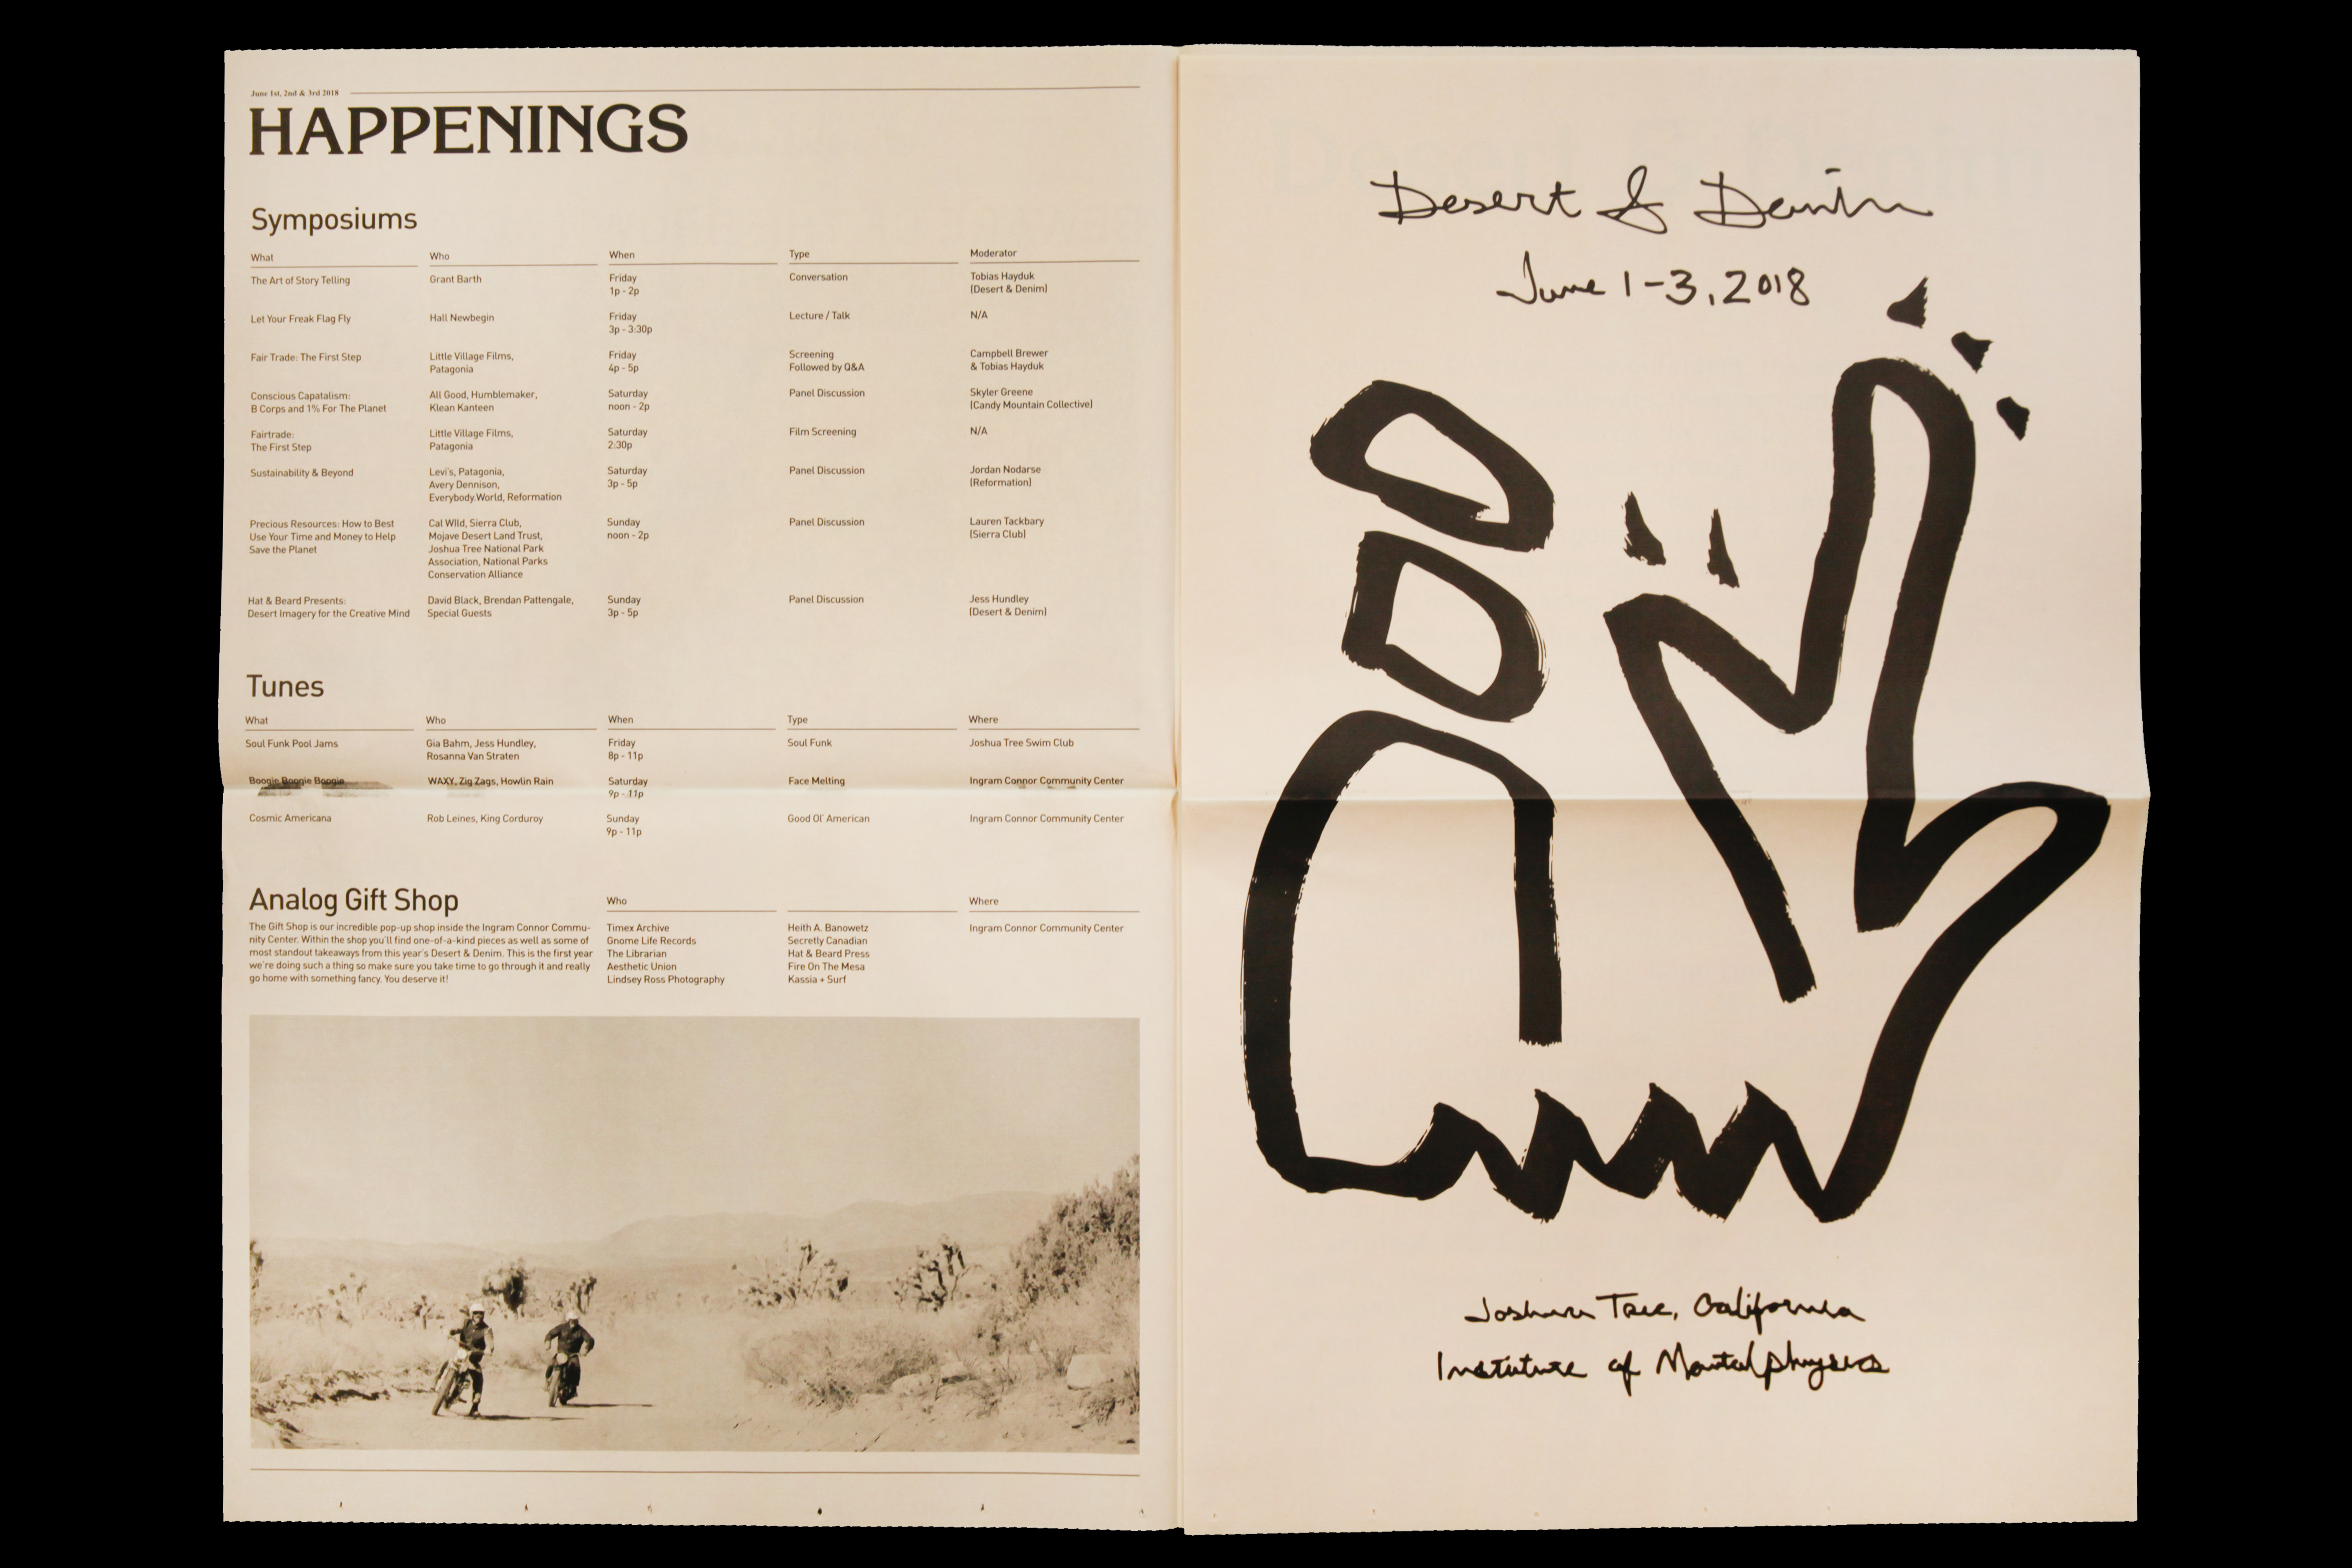 June 1st, 2nd & 3rd 2018
HAPPENINGS
Symposiums
What Who When Type Moderator
The Art of Story Telling Grant Barth Friday Conversation Tobias Hayduk
1p - 2p (Desert & Denim)
Let Your Freak Flag Fly Hall Newbegin Friday Lecture / Talk N/A
3p - 3:30p
Fair Trade: The First Step Little Village Films, Friday Screening Campbell Brewer
Patagonia 4p - 5p Followed by Q&A & Tobias Hayduk
Conscious Capatalism: All Good, Humblemaker, Saturday Panel Discussion Skyler Greene
B Corps and 1% For The Planet Klean Kanteen noon - 2p (Candy Mountain Collective)
Fairtrade: Little Village Films, Saturday Film Screening N/A
The First Step Patagonia 2:30p
Sustainability & Beyond Levi's, Patagonia, Saturday Panel Discussion Jordan Nodarse
Avery Dennison, 3p - 5p (Reformation)
Everybody.World, Reformation
Precious Resources: How to Best Cal WIld, Sierra Club, Sunday Panel Discussion Lauren Tackbary
Use Your Time and Money to Help Mojave Desert Land Trust, noon - 2p (Sierra Club)
Save the Planet Joshua Tree National Park
Association, National Parks
Conservation Alliance
Hat & Beard Presents: David Black, Brendan Pattengale, Sunday Panel Discussion Jess Hundley
Desert Imagery for the Creative Mind Special Guests 3p - 5p (Desert & Denim)
Tunes
What Who When Type Where
Soul Funk Pool Jams Gia Bahm, Jess Hundley, Friday Soul Funk Joshua Tree Swim Club
Rosanna Van Straten 8p - 11p
Boogie Boogie Boogie WAXY, Zig Zags, Howlin Rain Saturday Face Melting Ingram Connor Community Center
9p - 11p
Cosmic Americana Rob Leines, King Corduroy Sunday Good Ol' American Ingram Connor Community Center
9p - 11p
Analog Gift Shop Who Where
The Gift Shop is our incredible pop-up shop inside the Ingram Connor Commu- Timex Archive Heith A. Banowetz Ingram Connor Community Center
nity Center. Within the shop you'll find one-of-a-kind pieces as well as some of Gnome Life Records Secretly Canadian
most standout takeaways from this year's Desert & Denim. This is the first year The Librarian Hat & Beard Press
we're doing such a thing so make sure you take time to go through it and really Aesthetic Union Fire On The Mesa
go home with something fancy. You deserve it! Lindsey Ross Photography Kassia + Surf
Desert & Denim
June 1-3, 2018
Joshua Tree, California
Institute of Mentalphysics